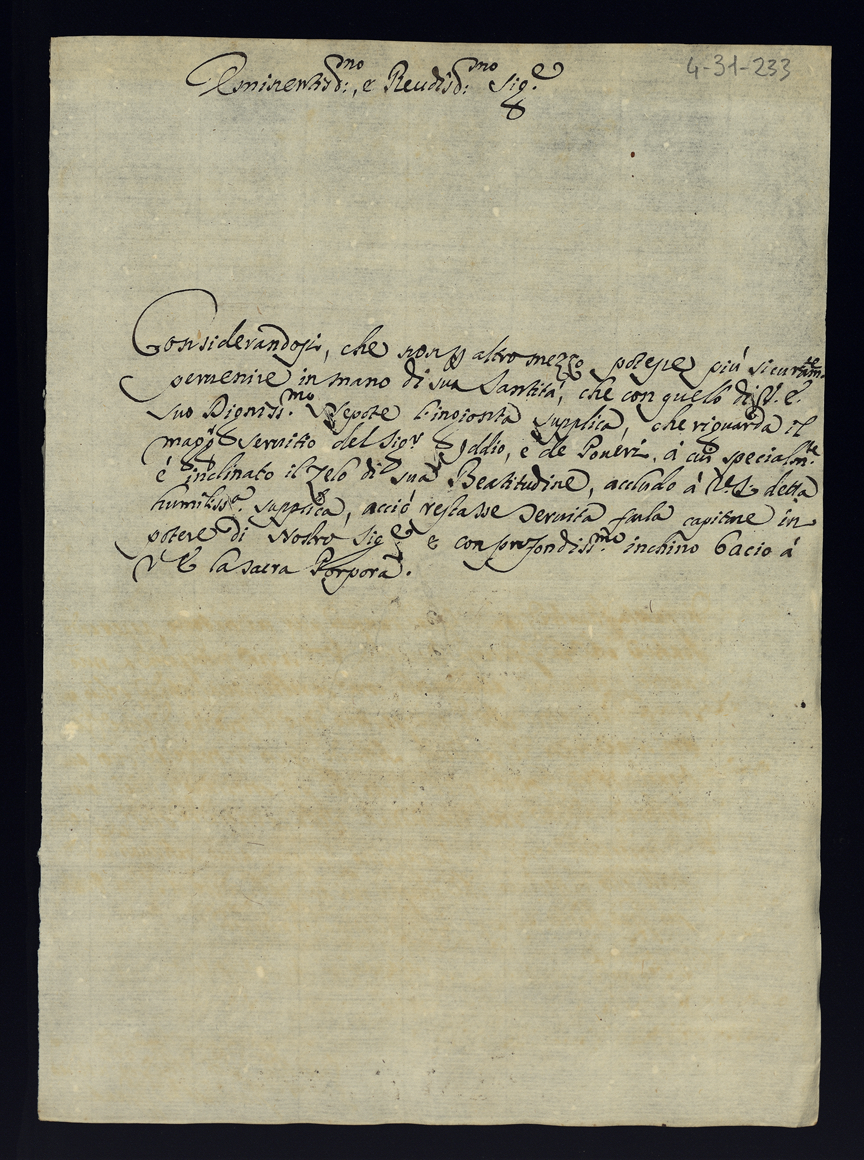 4-31-233
Eminentiss:mo, e Reudiss:mo Sig.e
Considerandosi, che non p altro mezzo potesse più sicuram.te
peruenire in mano di sua Santità, che con quelo di V. E.
suo Digniss.mo Nepote l'ingionta supplica, che riguarda il
magg.r seruitio del Sig.r Iddio, e de Poueri, à cui specialm.te
è inclinato il zelo di sua Beatitudine, accludo à V. E. detta
humiliss.a supplica, acciò restasse seruita farla capitare in
potere di Nostro Sig.e, e con profondiss.mo inchino bacio à
V E la sacra Porpora.